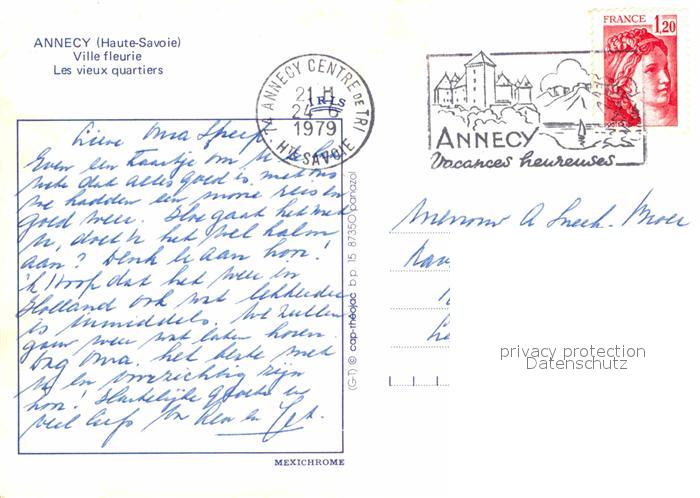 ANNECY (Haute-Savoie)
Ville fleurie
Les vieux quartiers
74 ANNECY CENTRE DE TRI
21 H
IRIS
24-6
1979
HTE SAVOIE
ANNECY
Vacances heureuses
FRANCE 1,20
Lieve Oma
Even een kaartje om te
dat alles goed is met ons
we hadden een mooie reis en
goed weer. Hoe gaat het met
U, doet U het wel kalm
aan? Denk er aan hoor!
'k Hoop dat het weer in
Holland ook wat lekkerder
is inmiddels. We zullen
gauw weer wat laten horen.
Dag Oma, het beste met
U en voorzichtig zijn
hoor! Hartelijke groeten en
veel liefs van en
Mevrouw A
privacy protection
Datenschutz
(G-T) © cap-théojac b.p. 15 87350 panazol
MEXICHROME